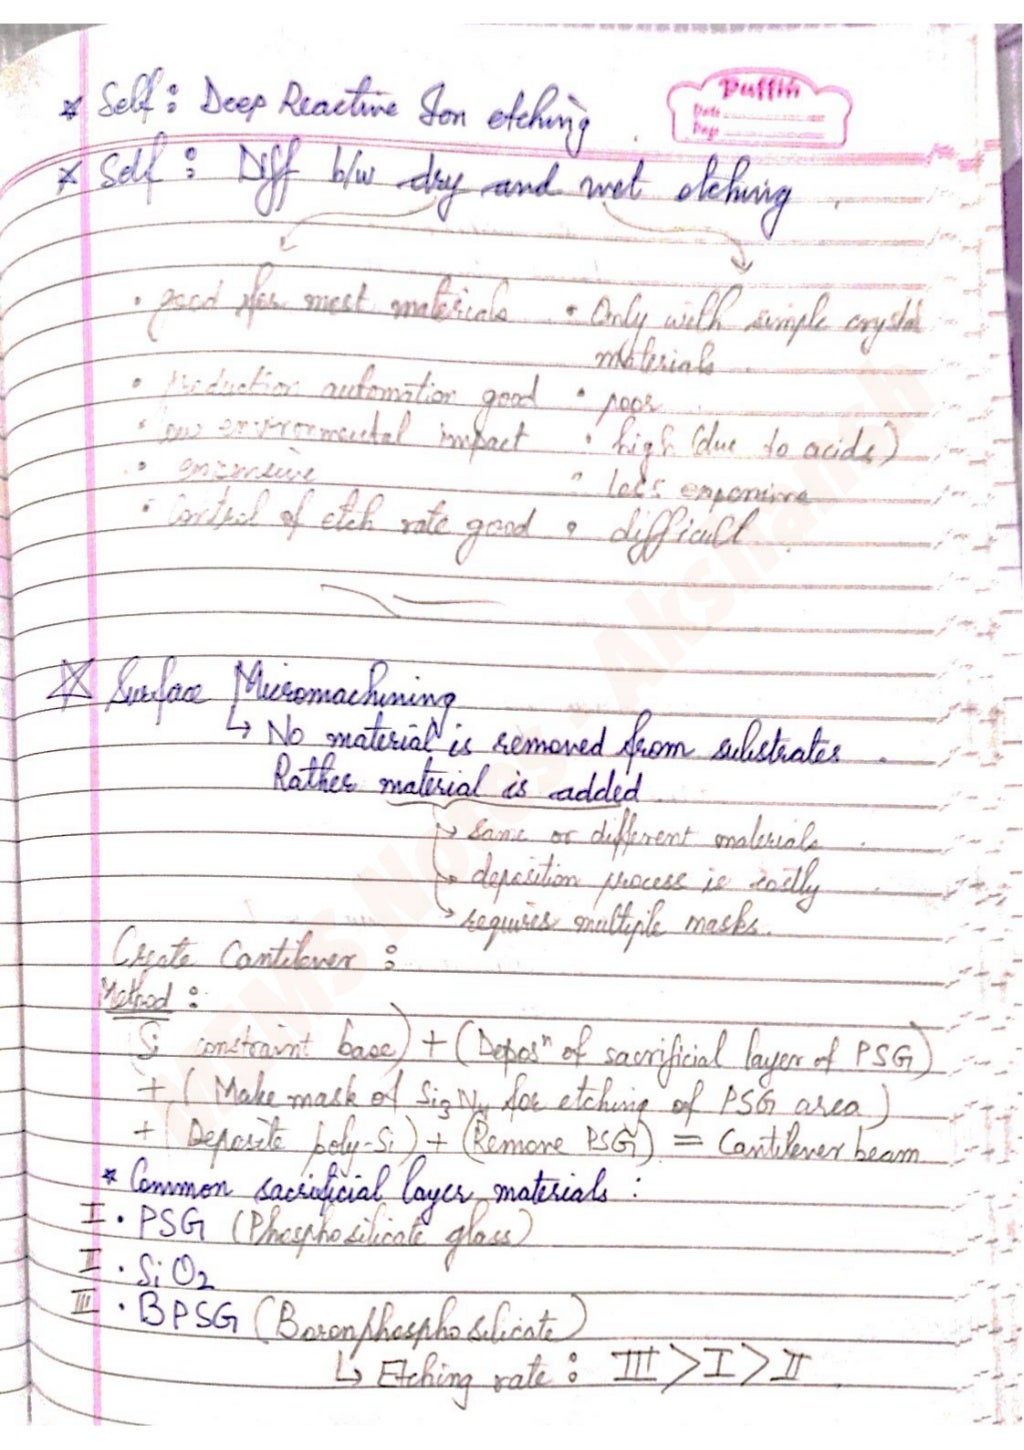 * Self : Deep Reactive Ion etching
Puffin
Date
Page
* Self : Diff b/w dry and wet etching
• good for most materials • Only with simple crystal
materials
• Production automation good • poor
• low environmental impact • high (due to acids)
• expensive • less expensive
• Control of etch rate good • difficult
☆ Surface Micromachining
↳ No material is removed from substrates.
Rather material is added
→ same or different materials.
→ deposition process is costly
→ requires multiple masks.
Create Cantilever :
Method :
Si constraint base) + (Deposⁿ of sacrificial layer of PSG)
+ (Make mask of Si3N4 for etching of PSG area)
+ (Deposite poly-Si) + (Remove PSG) = Cantilever beam
* Common sacrificial layer materials :
I • PSG (Phosphosilicate glass)
II • SiO2
III • BPSG (Boronphosphosilicate)
↳ Etching rate : III > I > II
MEMS Notes - Akshansh